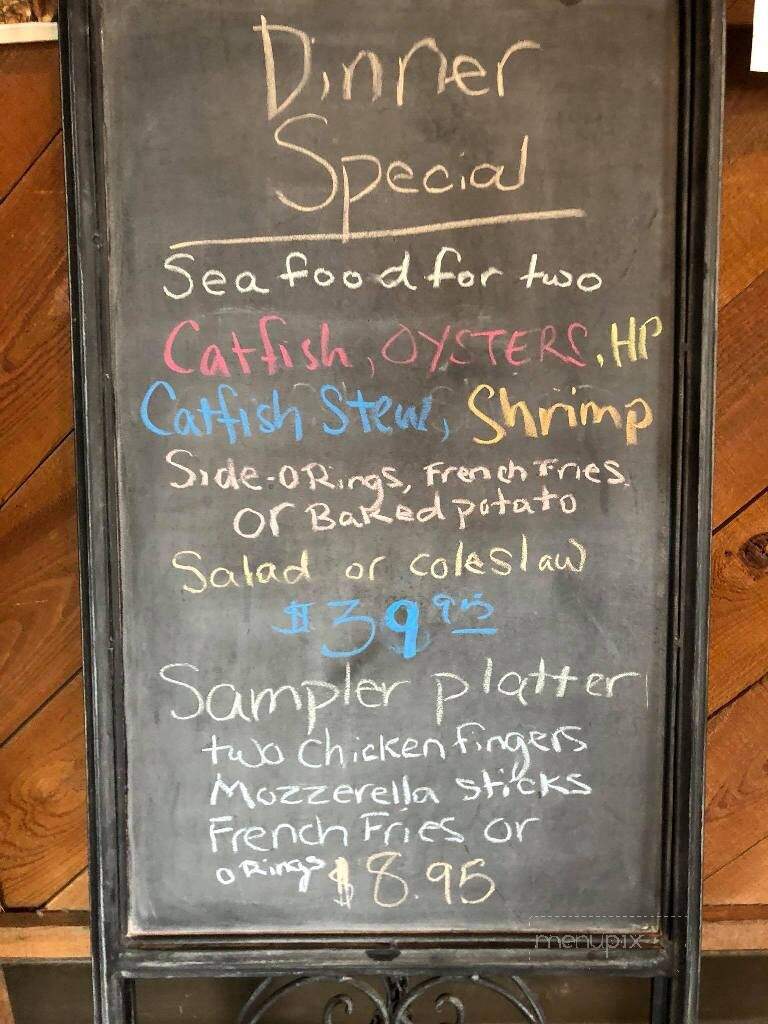 Dinner
Special
Seafood for two
Catfish, OYSTERS, HP
Catfish Stew, Shrimp
Side-O Rings, French Fries
or Baked potato
Salad or coleslaw
$39.95
Sampler platter
two chicken fingers
Mozzerella sticks
French Fries or
O Rings $8.95
menupix